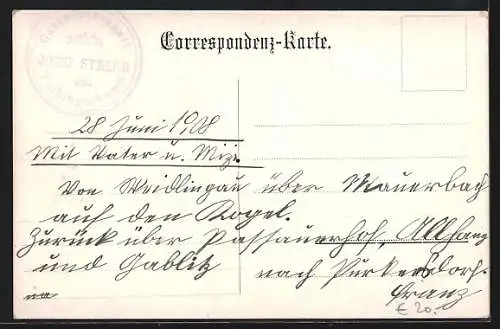 Correspondenz-Karte.
JOSEF
28 Juni 1908
Mit Vater u. Mizi.
Von Weidlingau über Mauerbach
auf den Kogel.
Zurück über Passauerhof, Allhang
und Gablitz nach Purkersdorf.
Franz
€ 20.-